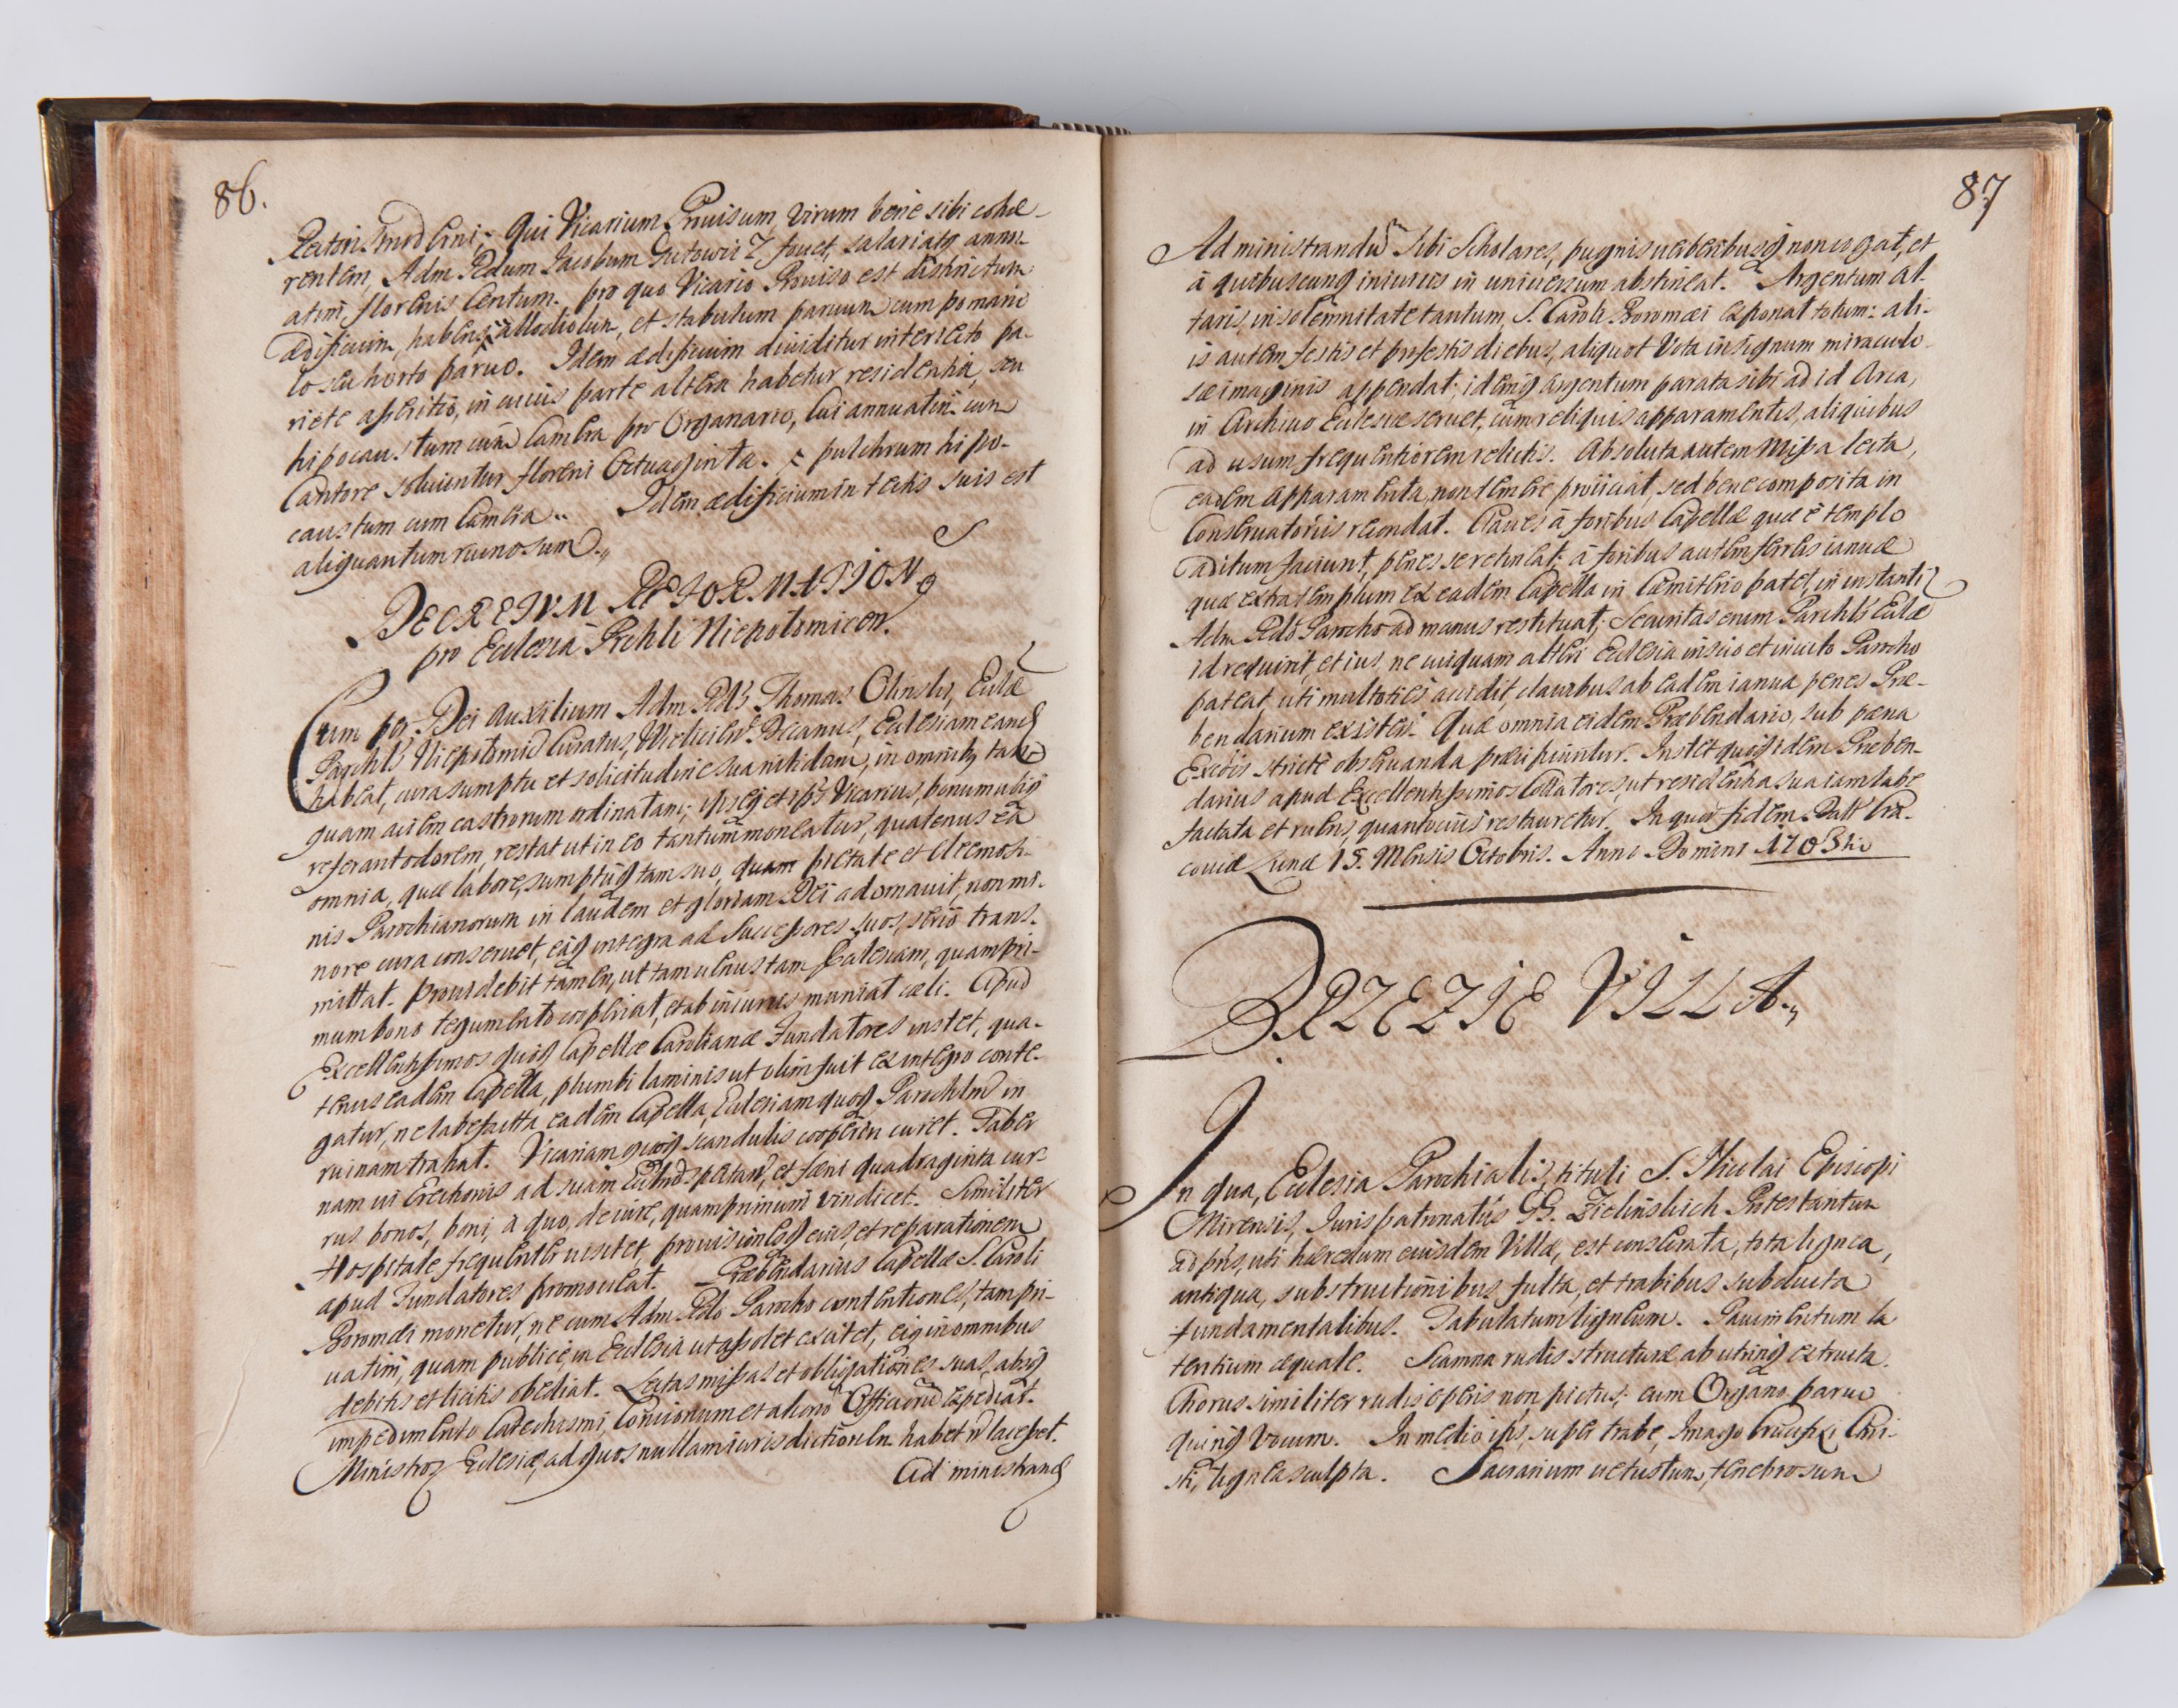 86.
Rectoris moderni, Qui Vicarium Provisum, virum bene sibi cohæ-
rentem, Adm Rdum Jacobum Gutowicz fovet, salariatq annu-
atim, florenis Centum. pro quo Vicario Proviso est distinctum
ædificium, habens allodiolum, et stabulum parvum cum pomario
lo seu horto parvo. Idem ædificium dividitur interiecto pa-
riete asseritio, in cuius parte altera habetur residentia, seu
hipocaustum cum Camera pro Organario, Cui annuatim cum
Cantore solvuntur floreni Octuaginta. pulchrum hipo-
caustum cum Camera. Idem ædificium in tectis suis est
aliquantum ruinosum.
DECRETUM REFORMATIONIS
pro Ecclesia Prchli Niepolomicen.
Cum per Dei auxilium Adm Rds Thomas Olinski, Eccl̃æ
Parchlis Niepolomic Curatus, Vielicien Decanus, Ecclesiam eand
habeat, cura sumptu et solicitudine sua nitidam, in omnibq tanq
quam aciem castrorum ordinatam; ipseq et ips Vicarius, bonum aliis
referant odorem, restat ut in eo tantum moneatur, quatenus ea
omnia, quæ labore, sumptuq tam suo, quam pietate et eleemosi-
nis Parochianorum in laudem et gloriam Dei adornavit, non mi-
nore cura conservet, eaq integra ad Successores suos, serio trans-
mittat. providebit tamen, ut tam venustam Ecclesiam, quam pri-
mum bono tegumento cooperiat, et ab iniuriis muniat cæli. Apud
Excellentissimos quoq Capellæ Carolianæ Fundatores instet, qua-
tenus eadem Capella, plumbi laminis ut olim fuit ex integro conte-
gatur, ne labefacta eadem Capella, Ecclesiam quoq Parochlem in
ruinam trahat. Vicariam quoq scandulis cooperiri curet. Taber
nam vi Erectionis ad suam Ecclm spectan, et fæni quadraginta cur-
rus bonos, boni, à quo, de iure, quamprimum vindicet. Similiter
Hospitale frequenter visitet, provisionesq eius et reparationem
apud Fundatores promoveat. Præbendarius Capellæ S. Caroli
Boromæi monetur, ne cum Adm Rdo Parocho contentiones, tam pri-
vatim, quam publicè, in Ecclesia ut assolet excitet, eiq in omnibus
debitis et licitis obediat. Lectas missas et obligationes suas, absq
impedimento Catechismi, Concionum et aliorū Officiorū expediat.
Ministroz Ecclesiæ, ad quos nullam iurisdictionem habet n lacesset.
Ad ministrand
87
Ad ministrandū sibi Scholares, pugnis verberibusq non cogat, et
à quibuscunq iniuriis in universum abstineat. Argentum al-
taris, in solemnitate tantum S. Caroli Boromæi exponat totum: ali-
is autem festis et profestis diebus, aliquot Vota in signum miraculo-
sæ imaginis appendat; idemq argentum parata sibi ad id Arca,
in Archivo Ecclesiæ servet, cum reliquis apparamentis, aliquibus
ad usum frequentiorem relictis. Absoluta autem Missa lecta,
eadem apparamenta, non temerè proiiciat, sed bene composita in
Conservatoriis recondat. Claves à foribus Capellæ quæ è templo
aditum faciunt, penes se retineat; à foribus autem ferreis ianuæ
quæ extra templum ex eadem Capella in Cæmiterio patet, in instanti
Adm Rdo Parocho ad manus restituat; Securitas enim Parchlis Eccl̃æ
id requirit, et ius, ne cuiquam alteri Ecclesia inscio et invito Parocho
pateat, uti multoties accidit, clavibus ab eadem ianua penes Præ-
bendarium existen. Quæ omnia eidem Præbendario, sub pæna
Excõis strictè observanda præcipiuntur. Instet quoq idem Præben-
darius apud Excellentissimos Collatores, ut residentia sua iam labe
factata et ruens, quantocius restauretur. In quor fidem. Datt Cra-
coviæ Luna 15. Mensis Octobris. Anno Domini 1703tio
BRZEZIE VILLA.
In qua, Ecclesia Parochialis, tituli S. Nicolai Episcopi
Mirensis, Juris patronatus GG. Zielinskich Protestantum
ad pns, uti hæredum eiusdem Villæ, est consecrata, tota lignea,
antiqua, substructionibus fulta, et trabibus subducta
fundamentalibus. Tabulatum ligneum. Pavimentum la
teritium æquale. Scamna rudis structuræ ab utrinq extructa.
Chorus similiter rudis operis non pictus; cum Organo parvo
quinq Vocum. In medio ips, super trabe, Imago Crucifixi Chri-
sti, lignea sculpta. Sacrarium vetustum, tenebrosum